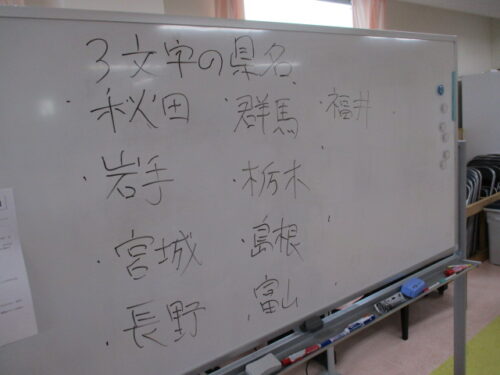 3文字の県名
・秋田
・岩手
・宮城
・長野
・群馬
・栃木
・島根
・富山
・福井